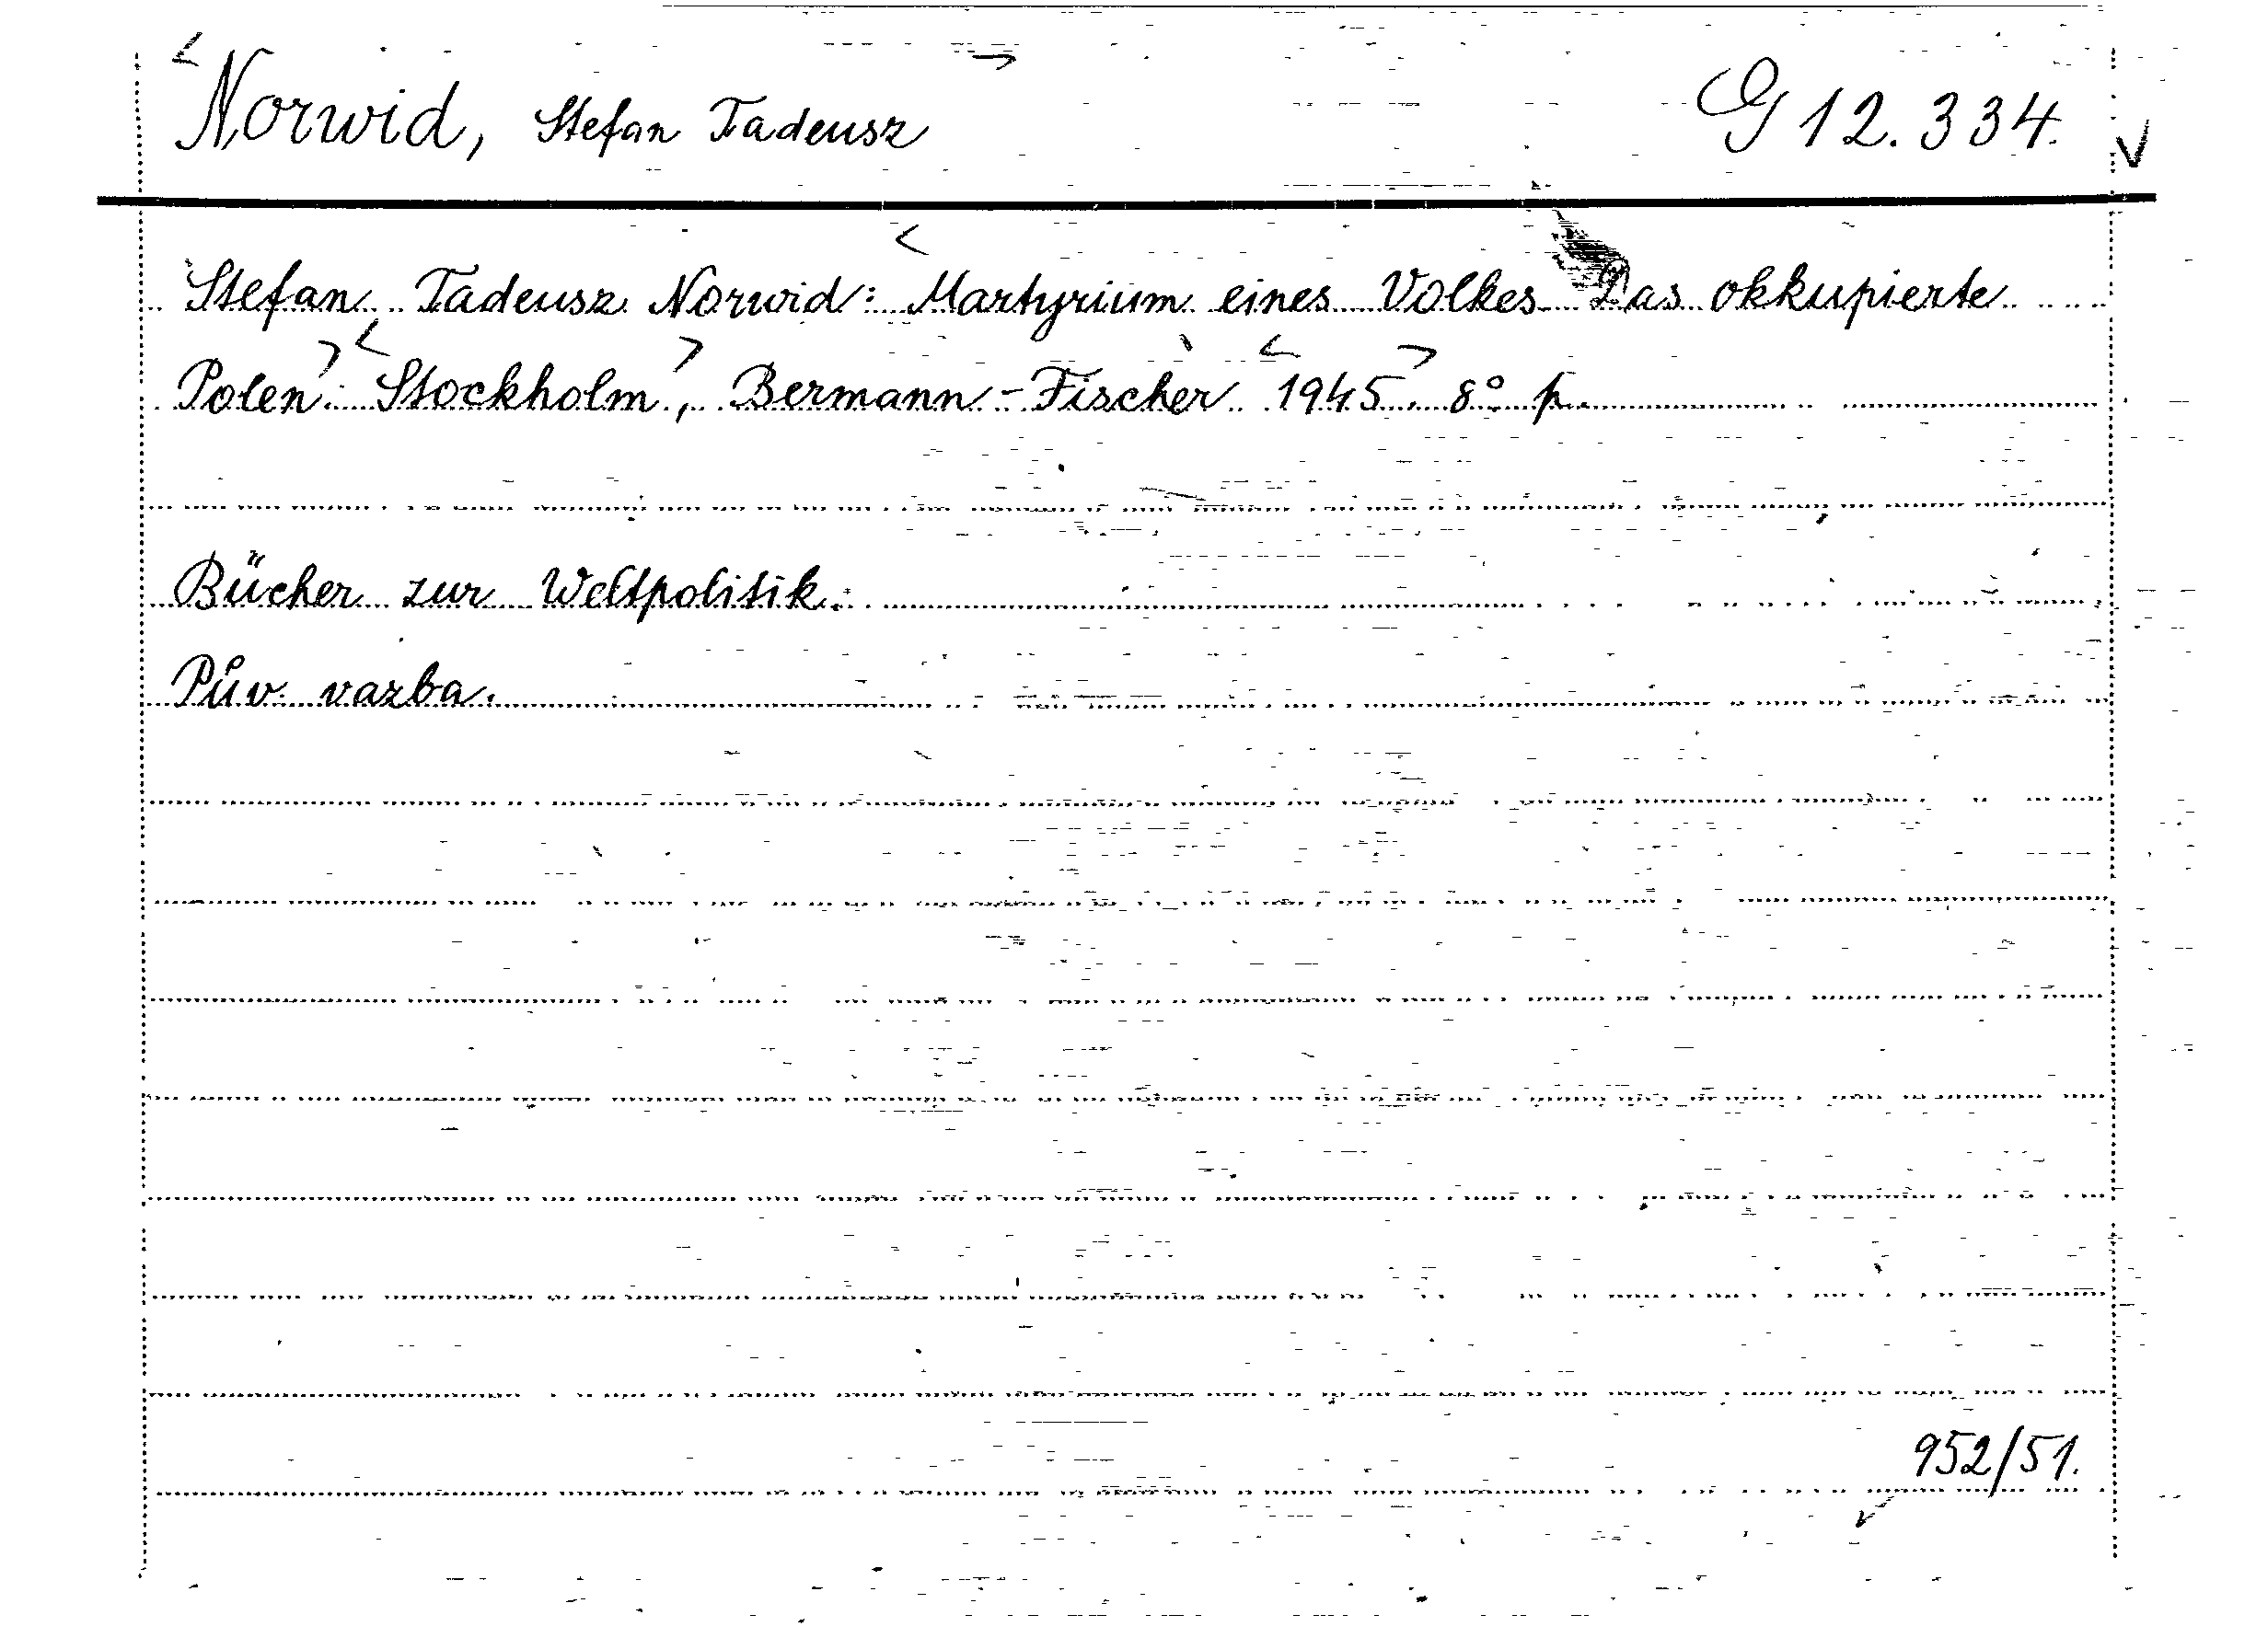 Norwid, Stefan Tadeusz G 12.334.
Stefan Tadeusz Norwid: Martyrium eines Volkes Das okkupierte
Polen. Stockholm, Bermann-Fischer 1945. 8° p.
Bücher zur Weltpolitik.
Pův. vazba.
952/51.